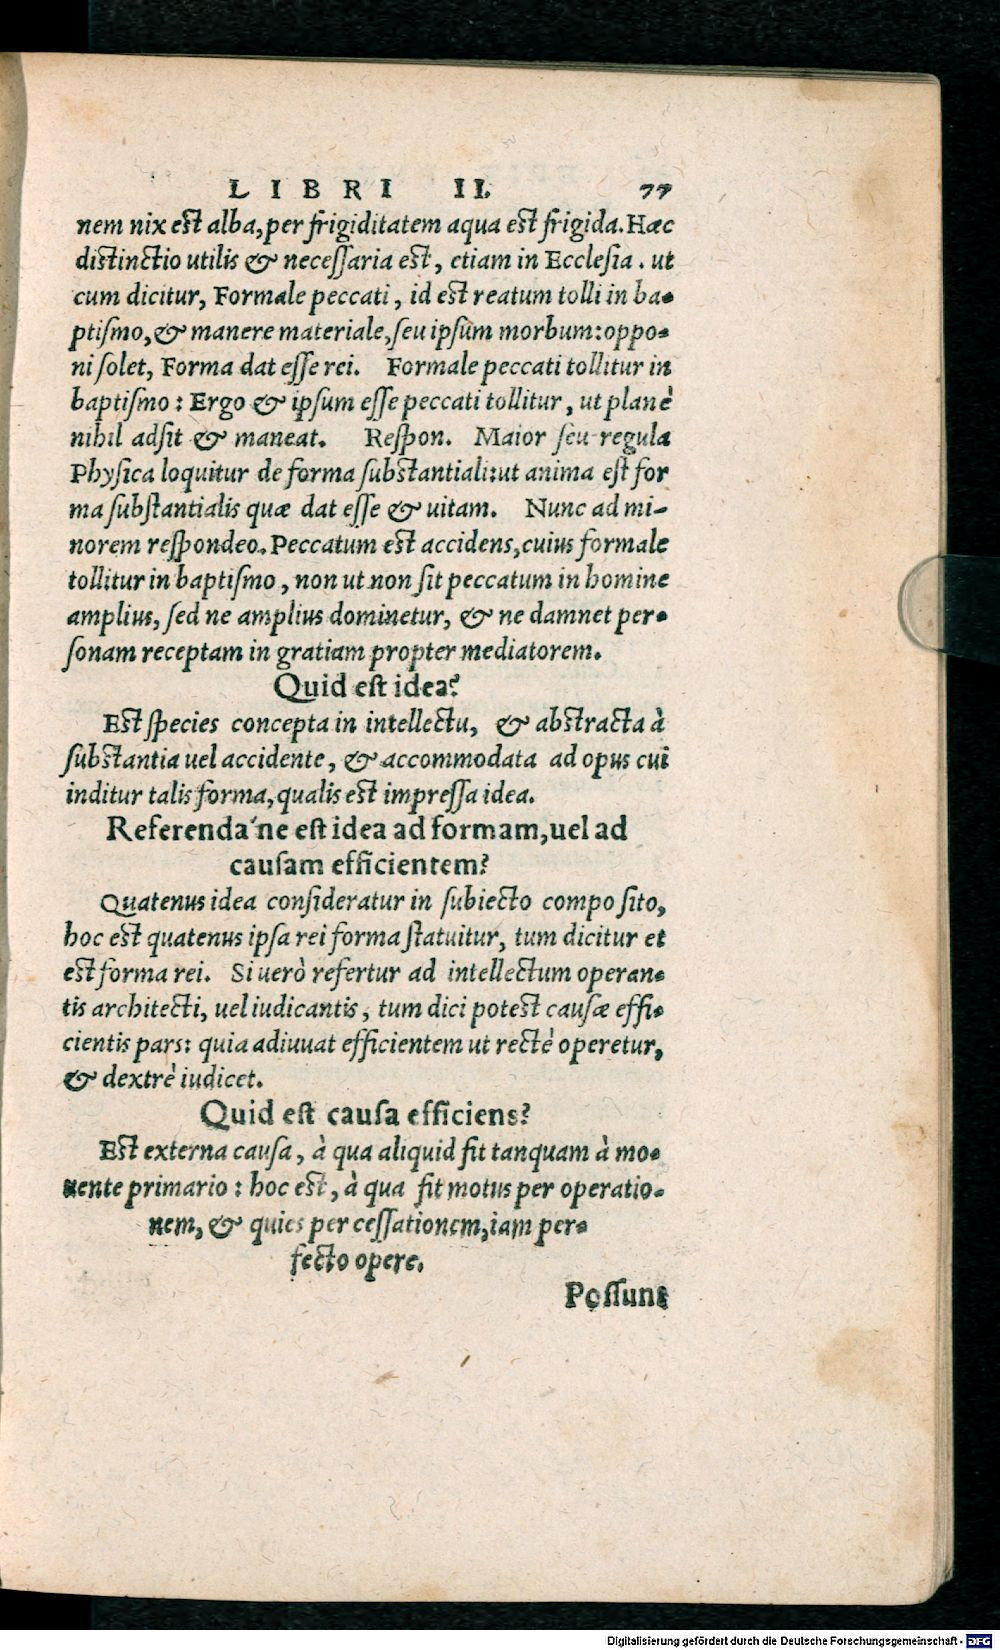 LIBRI II. 77
nem nix est alba, per frigiditatem aqua est frigida. Hæc
distinctio utilis & necessaria est, etiam in Ecclesia. ut
cum dicitur, Formale peccati, id est reatum tolli in ba-
ptismo, & manere materiale, seu ipsum morbum: oppo-
ni solet, Forma dat esse rei. Formale peccati tollitur in
baptismo: Ergo & ipsum esse peccati tollitur, ut planè
nihil adsit & maneat. Respon. Maior seu regula
Physica loquitur de forma substantiali: ut anima est for
ma substantialis quæ dat esse & uitam. Nunc ad mi-
norem respondeo. Peccatum est accidens, cuius formale
tollitur in baptismo, non ut non sit peccatum in homine
amplius, sed ne amplius dominetur, & ne damnet per-
sonam receptam in gratiam propter mediatorem.
Quid est idea?
Est species concepta in intellectu, & abstracta à
substantia uel accidente, & accommodata ad opus cui
inditur talis forma, qualis est impressa idea.
Referenda'ne est idea ad formam, uel ad
causam efficientem?
Quatenus idea consideratur in subiecto composito,
hoc est quatenus ipsa rei forma statuitur, tum dicitur et
est forma rei. Si uerò refertur ad intellectum operan-
tis architecti, uel iudicantis, tum dici potest causæ effi-
cientis pars: quia adiuuat efficientem ut rectè operetur,
& dextrè iudicet.
Quid est causa efficiens?
Est externa causa, à qua aliquid fit tanquam à mo-
uente primario: hoc est, à qua fit motus per operatio-
nem, & quies per cessationem, iam per-
fecto opere.
Possunt
Digitalisierung gefördert durch die Deutsche Forschungsgemeinschaft - DFG